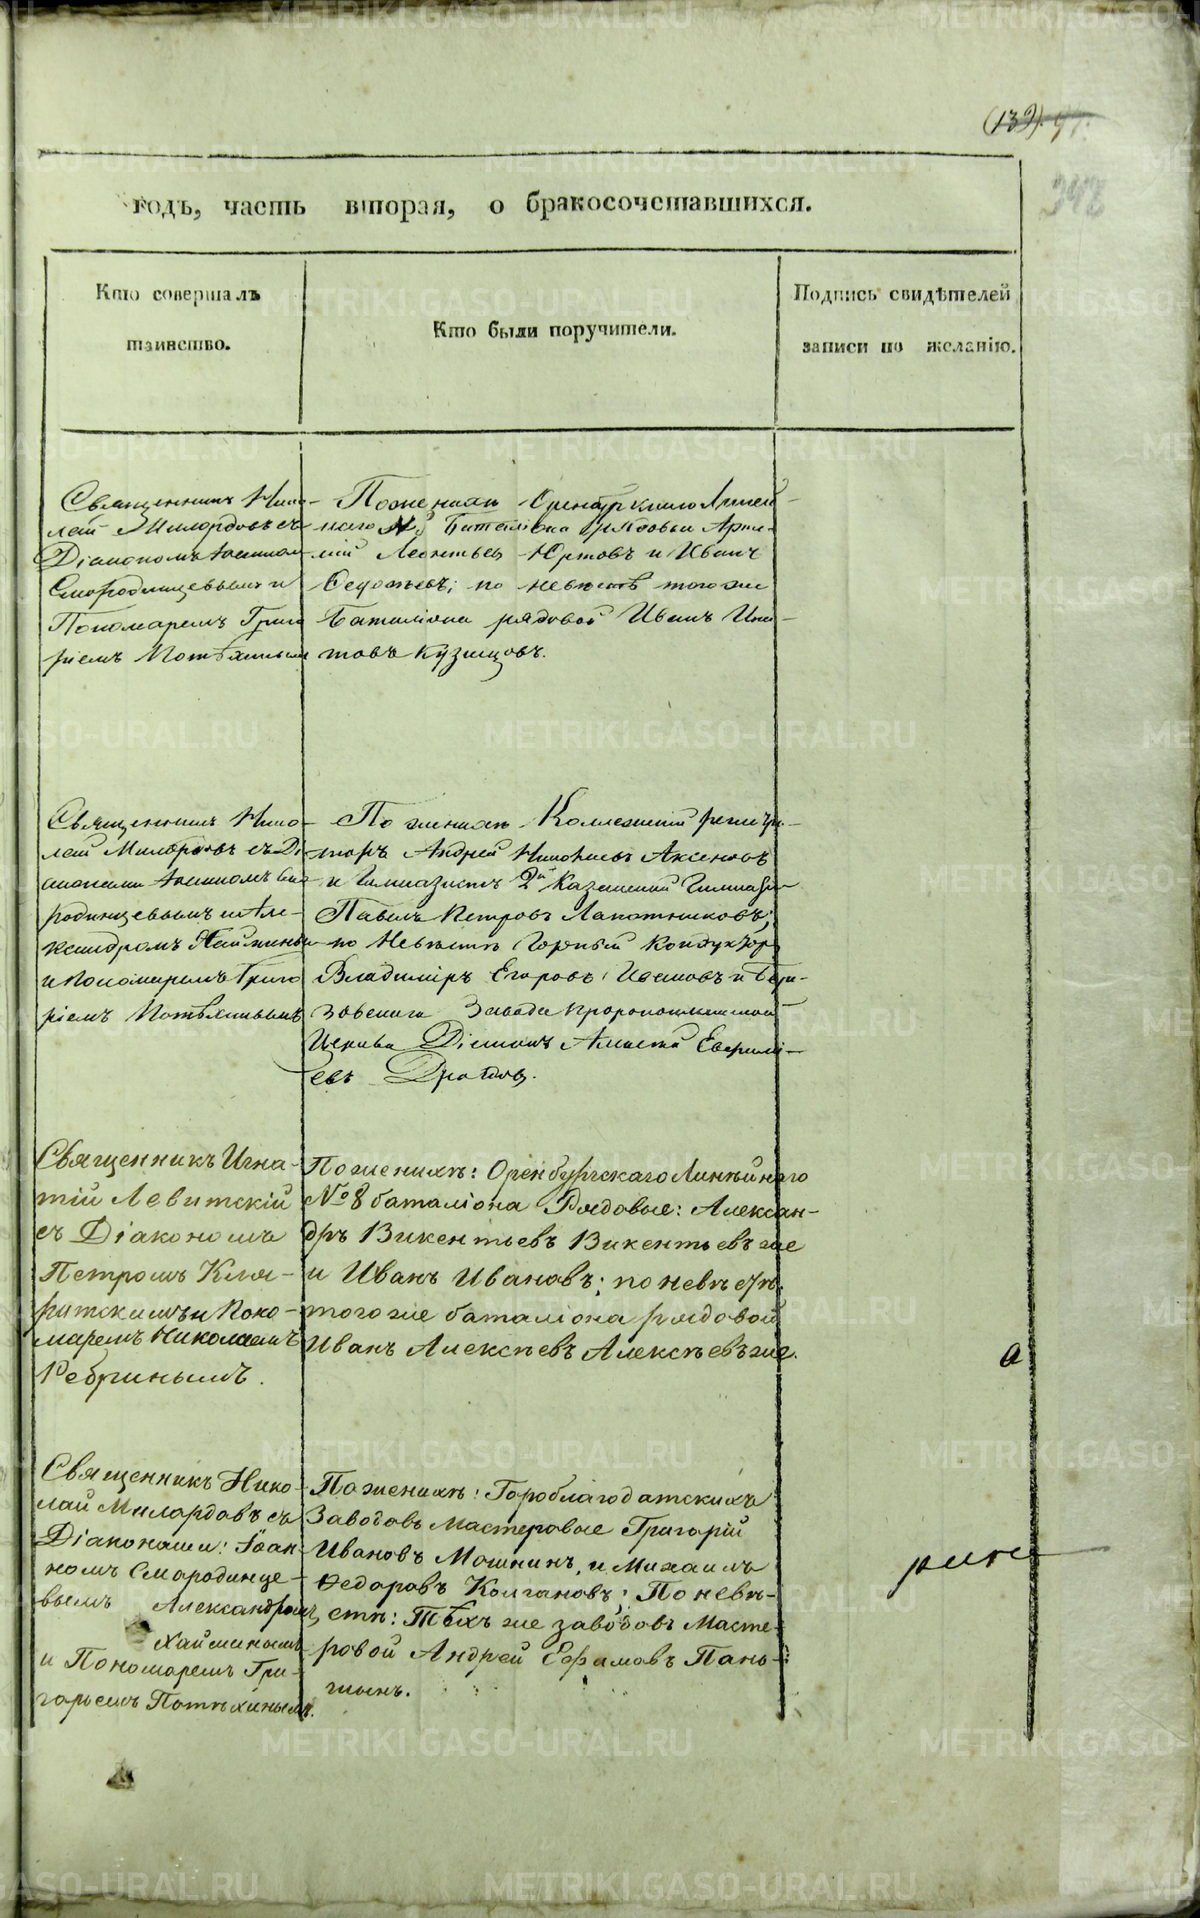 (132). 97.
348
годъ, часть вторая, о бракосочетавшихся.
Кто совершалъ
таинство.
Кто были поручители.
Подпись свидѣтелей
записи по желанію.
Священникъ Нико-
лай Милордовъ съ
Діакономъ Іоанномъ
Смородинцевымъ и
Пономаремъ Григо
ріемъ Потѣхинымъ
По женихѣ Оренбургскаго Линей-
наго № Баталіона рядовые Арте-
мій Леонтьевъ Юртовъ и Иванъ
Федотьевъ; по невѣстѣ того же
Баталіона рядовой Иванъ Ипа-
товъ Кузнецовъ.
Священникъ Нико-
лай Милордовъ съ Ді
аконами Іоанномъ Смо-
родинцевымъ и Але-
ксандромъ Хайминымъ
и Пономаремъ Григо
ріемъ Потѣхинымъ
По женихѣ Коллежскій регистра-
торъ Андрей Аксеновъ
и Гимназистъ 2й Казанской Гимназіи
Павелъ Петровъ Лапотниковъ;
по Невѣстѣ Горный Кондукторъ
Владиміръ Егоровъ Ивановъ и Бере-
зовскаго Завода Пророкоильинской
Церкви Діаконъ Алексѣй
евъ
Священникъ Игна-
тій Левитскій
съ Діакономъ
Петромъ Кля-
ритскимъ и Поно-
маремъ Николаемъ
Ребринымъ.
По женихѣ: Оренбургскаго Линѣйнаго
№ 8 баталіона Рядовые: Алексан-
дръ Викентьевъ Викентьевъ же
и Иванъ Ивановъ; по невѣстѣ:
того же баталіона рядовой
Иванъ Алексѣевъ Алексѣевъ же.
а
Священникъ Нико-
лай Милордовъ съ
Діаконами: Іоан-
номъ Смородинце-
вымъ Александромъ
Хайминымъ
и Пономаремъ Гри-
горьемъ Потѣхинымъ.
По женихѣ: Гороблагодатскихъ
Заводовъ мастеровые Григорій
Ивановъ Мошнинъ, и Михаилъ
Ѳедоровъ Колгановъ; По невѣ-
стѣ: Тѣхъ же заводовъ Масте-
ровой Андрей Ефимовъ Пань-
шинъ.